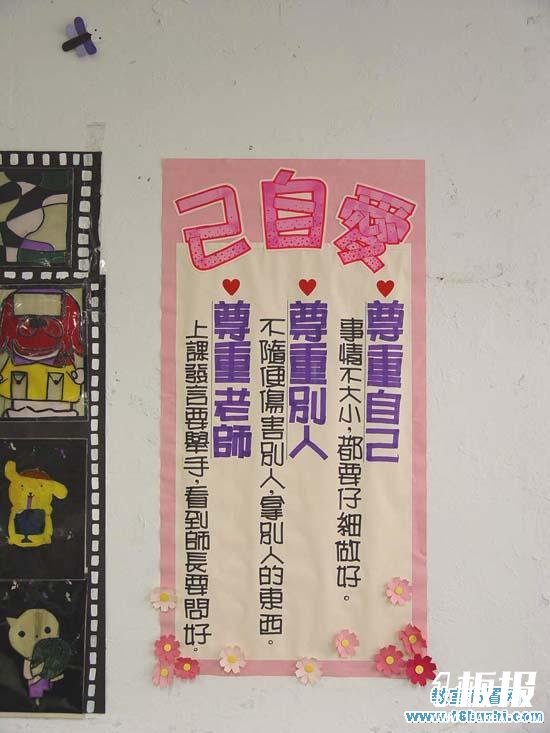 愛自己
尊重自己
事情不大小,都要仔細做好。
尊重別人
不隨便傷害別人,拿別人的東西。
尊重老師
上課發言要舉手,看到師長要問好。
板报